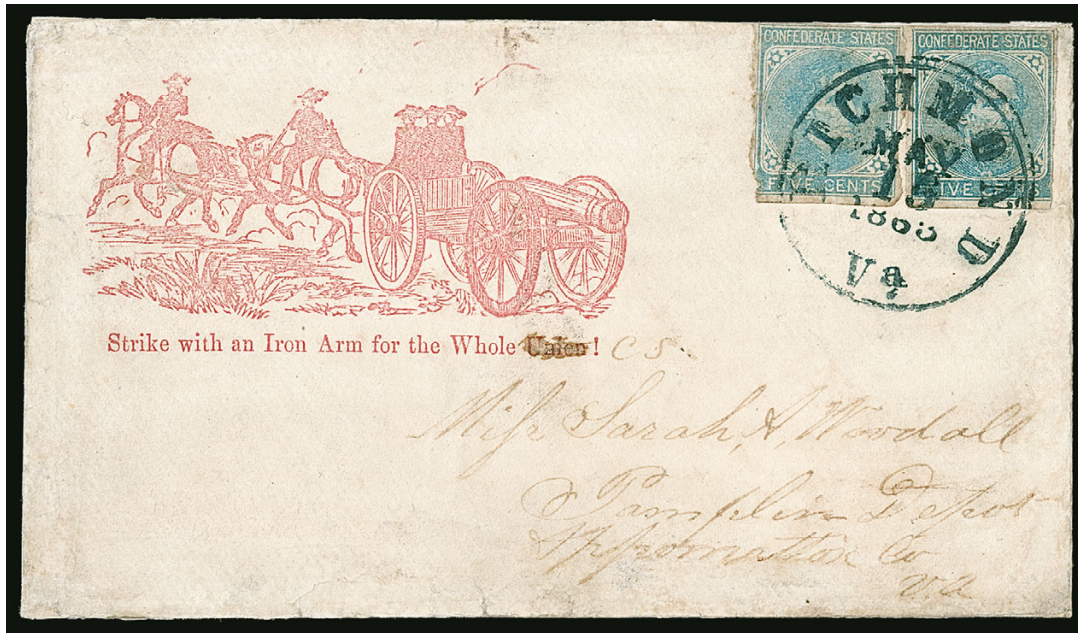 CONFEDERATE STATES
CONFEDERATE STATES
FIVE CENTS
FIVE
RICHMOND
MAY
1863
Va
Strike with an Iron Arm for the Whole Union! C S.
Miss Sarah, A, Woodall
Pamplin Depot
Appromattox Co
va